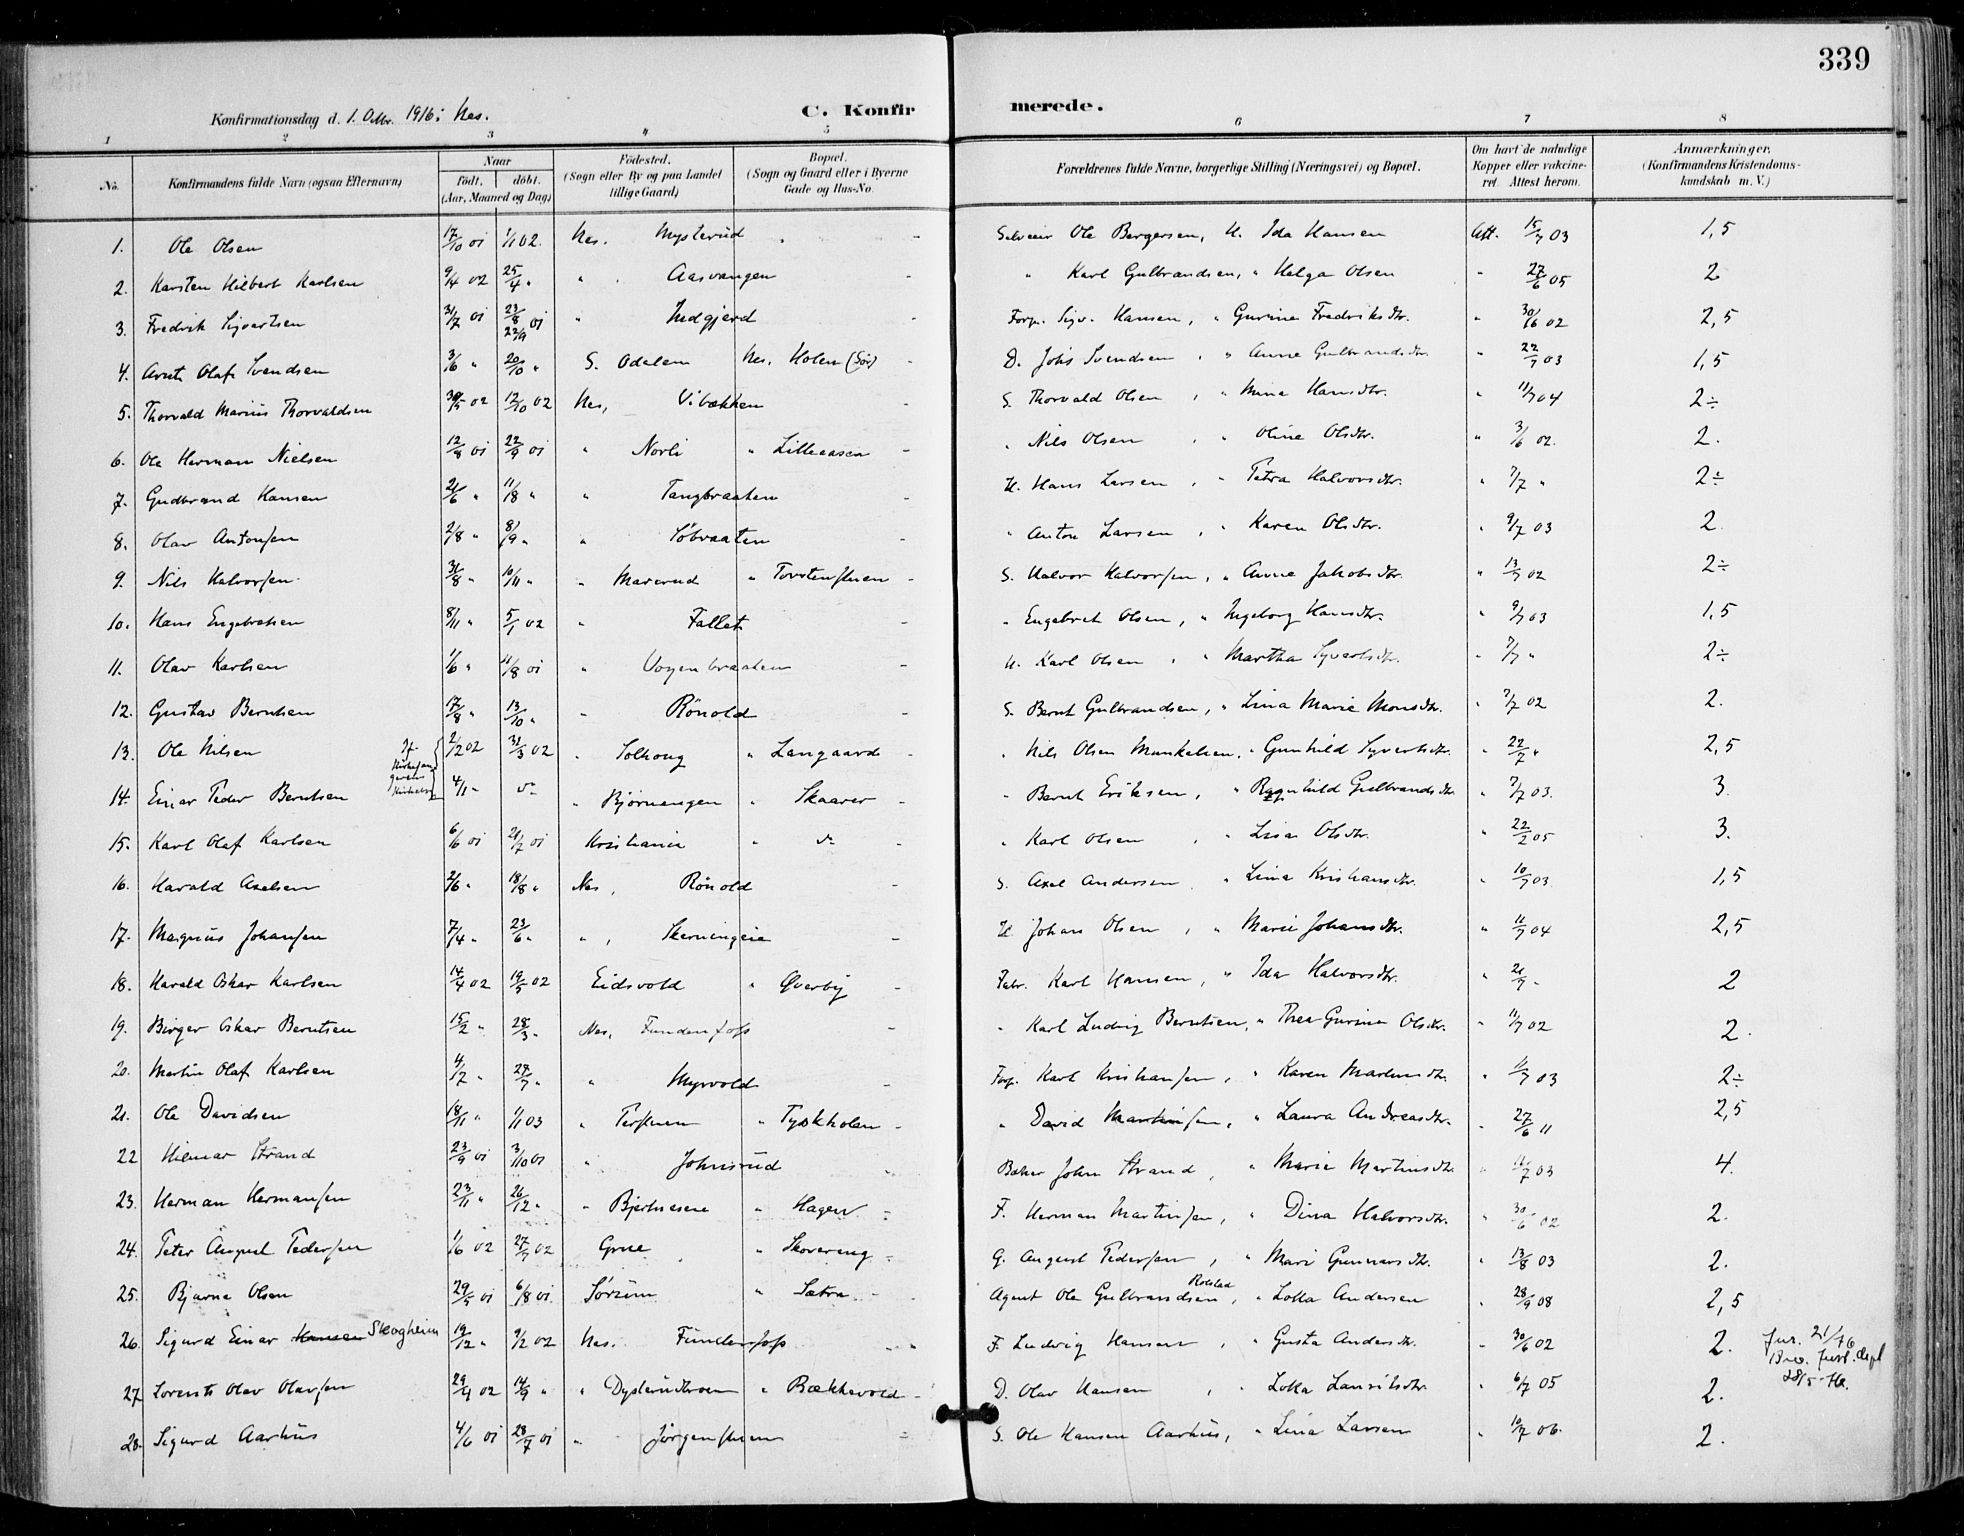 339
Konfirmationsdag d. 1. Oktbr. 1916 i Nes.
C. Konfirmerede.
1 2 3 4 5 6 7 8
No. Konfirmandens fulde Navn (ogsaa Efternavn) Naar födt, döbt. (Aar, Maaned og Dag) Födested. (Sogn eller By og paa Landet tillige Gaard) Bopæl. (Sogn og Gaard eller i Byerne Gade og Hus-No. Forældrenes fulde Navne, borgerlige Stilling (Næringsvei) og Bopæl. Om havt de naturlige Kopper eller vakcineret. Attest herom. Anmærkninger. (Konfirmandens Kristendomskundskab m. V.)
1. Ole Olsen 17/10 01 1/1 02. Nes. Mysterud Selveier Ole Bergersen, H. Ida Hansen Att. 15/7 03 1,5
2. Karsten Hilbert Karlsen 9/4 02 25/4 " " Aasvangen " Karl Gulbrandsen, " Helga Olsen " 27/6 05 2
3. Fredrik Sigvartsen 31/7 01 23/8 22/9 01 " Indgjerd Forp. Sigv. Hansen, " Gurine Fredriksdtr. " 30/6 02 2,5
4. Arnt Olaf Svendsen 3/6 " 20/10 " S. Odalen Nes. Holen (Sör) D. Johs Svendsen " Anne Gulbrandsdtr. " 22/7 03 1,5
5. Thorvald Marius Thorvaldsen 30/5 02 12/10 02 Nes, Vibækken S. Thorvald Olsen, " Mina Hansdtr. " 11/7 04 2÷
6. Ole Herman Nielsen 12/8 01 22/9 01 " Norli " Lilleaasen " Nils Olsen, " Oline Olsdtr. " 3/6 02. 2.
7. Gudbrand Hansen 21/6 " 11/8 " " Tangbraaten H. Hans Larsen, " Petra Halvorsdtr. " 7/7 " 2÷
8. Olav Antonsen 2/8 " 8/9 " " Söbraaten " Anton Larsen, " Karen Olsdtr. " 9/7 03 2
9. Nils Halvorsen 31/8 " 10/11 " " Marerud " Torstenstuen S. Halvor Halvorsen, " Anne Jakobsdtr. " 13/7 02 2÷
10. Hans Engebretsen 8/11 " 5/1 02 " Fallet " Engebret Olsen, " Ingeborg Hansdtr. " 9/7 03 1,5
11. Olav Karlsen 1/6 " 11/8 01 " Voyenbraaten H. Karl Olsen, " Martha Syvertsdtr. " 7/7 " 2÷
12. Gustav Berntsen 17/8 " 13/10 " " Rönold S. Bernt Gulbrandsen, " Lina Marie Monsdtr. " 7/7 02 2.
13. Ole Nilsen 2/2 02 31/3 02 " Solhaug " Langaard " Nils Olsen Munkelsen, " Gunhild Syvertsdtr. " 22/7 " 2,5
14. Einar Peder Berntsen 4/1 " do " Bjørnengen " Skaarer " Bernt Eriksen, " Ragnhild Gulbrandsdtr. " 7/7 03. 3.
15. Karl Olaf Karlsen 6/6 01 21/7 01 Kristiania " do " Karl Olsen, " Lina Olsdtr. " 22/2 05 3.
16. Harald Axelsen 2/6 " 18/8 " Nes, Rönold S. Axel Andersen " Lina Kristiansdtr. " 10/7 03 1,5
17. Magnus Johansen 7/4 " 23/6 " " Skerningeie H. Johan Olsen, " Marie Johansdtr. " 11/7 04 2,5
18. Harald Oskar Karlsen 14/4 02 19/5 02 Eidsvold " Øverby Fabr. Karl Hansen, " Ida Halvorsdtr. " 21/7 " 2
19. Birger Oskar Berntsen 15/2 " 28/3 " Nes, Fundenfoss " Karl Ludvig Berntsen, " Thea Gurine Olsdtr. " 11/7 02 2.
20. Martin Olaf Karlsen 4/7 " 27/7 " " Myrvold Forp. Karl Kristiansen, " Karen Martinsdtr. " 11/7 03 2÷
21. Ole Davidsen 18/11 " 1/1 03 " Terstuen " Tyskholen " David Martinsen, " Laura Andreasdtr. " 27/6 11 2,5
22 Hilmar Strand 23/9 01 3/10 01 " Johnsrud Baker John Strand, " Marie Martinsdtr. " 11/7 03 4.
23. Herman Hermansen 23/11 " 26/12 " " Bjertnesene " Hagen F. Herman Martinsen, " Dina Halvorsdtr. " 30/6 02 2.
24. Peter August Pedersen 1/6 02 27/7 02 Grue " Skovereng G. August Pedersen, " Mari Gunnarsdtr. " 13/8 03 2.
25. Bjarne Olsen 29/5 01 6/8 01. Sørum " Sætra Agent Ole Gulbrandsen Rolstad, " Lotta Andersen " 28/9 08 2,5
26. Sigurd Einar Hansen Skogheim 19/12 " 9/2 02 Nes. Fundenfoss F. Ludvig Hansen, " Gusta Andersdtr. " 30/6 02 2.
27 Lorents Olav Olavsen 29/4 02 14/9 " " Dysterudtroen " Bækkevold D. Olav Hansen, " Lotta Lauritsdtr. " 6/7 05 2.
28. Sigurd Aarhus 4/6 01 28/7 01 " Jörgenstuen S. Ole Hansen Aarhus, " Lina Larsen " 10/7 06. 2.